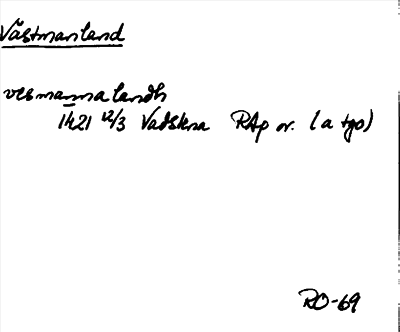 Västmanland
vesmannalandh
1421 12/3 Vadstena RAp or. (a tgo)
RO-69